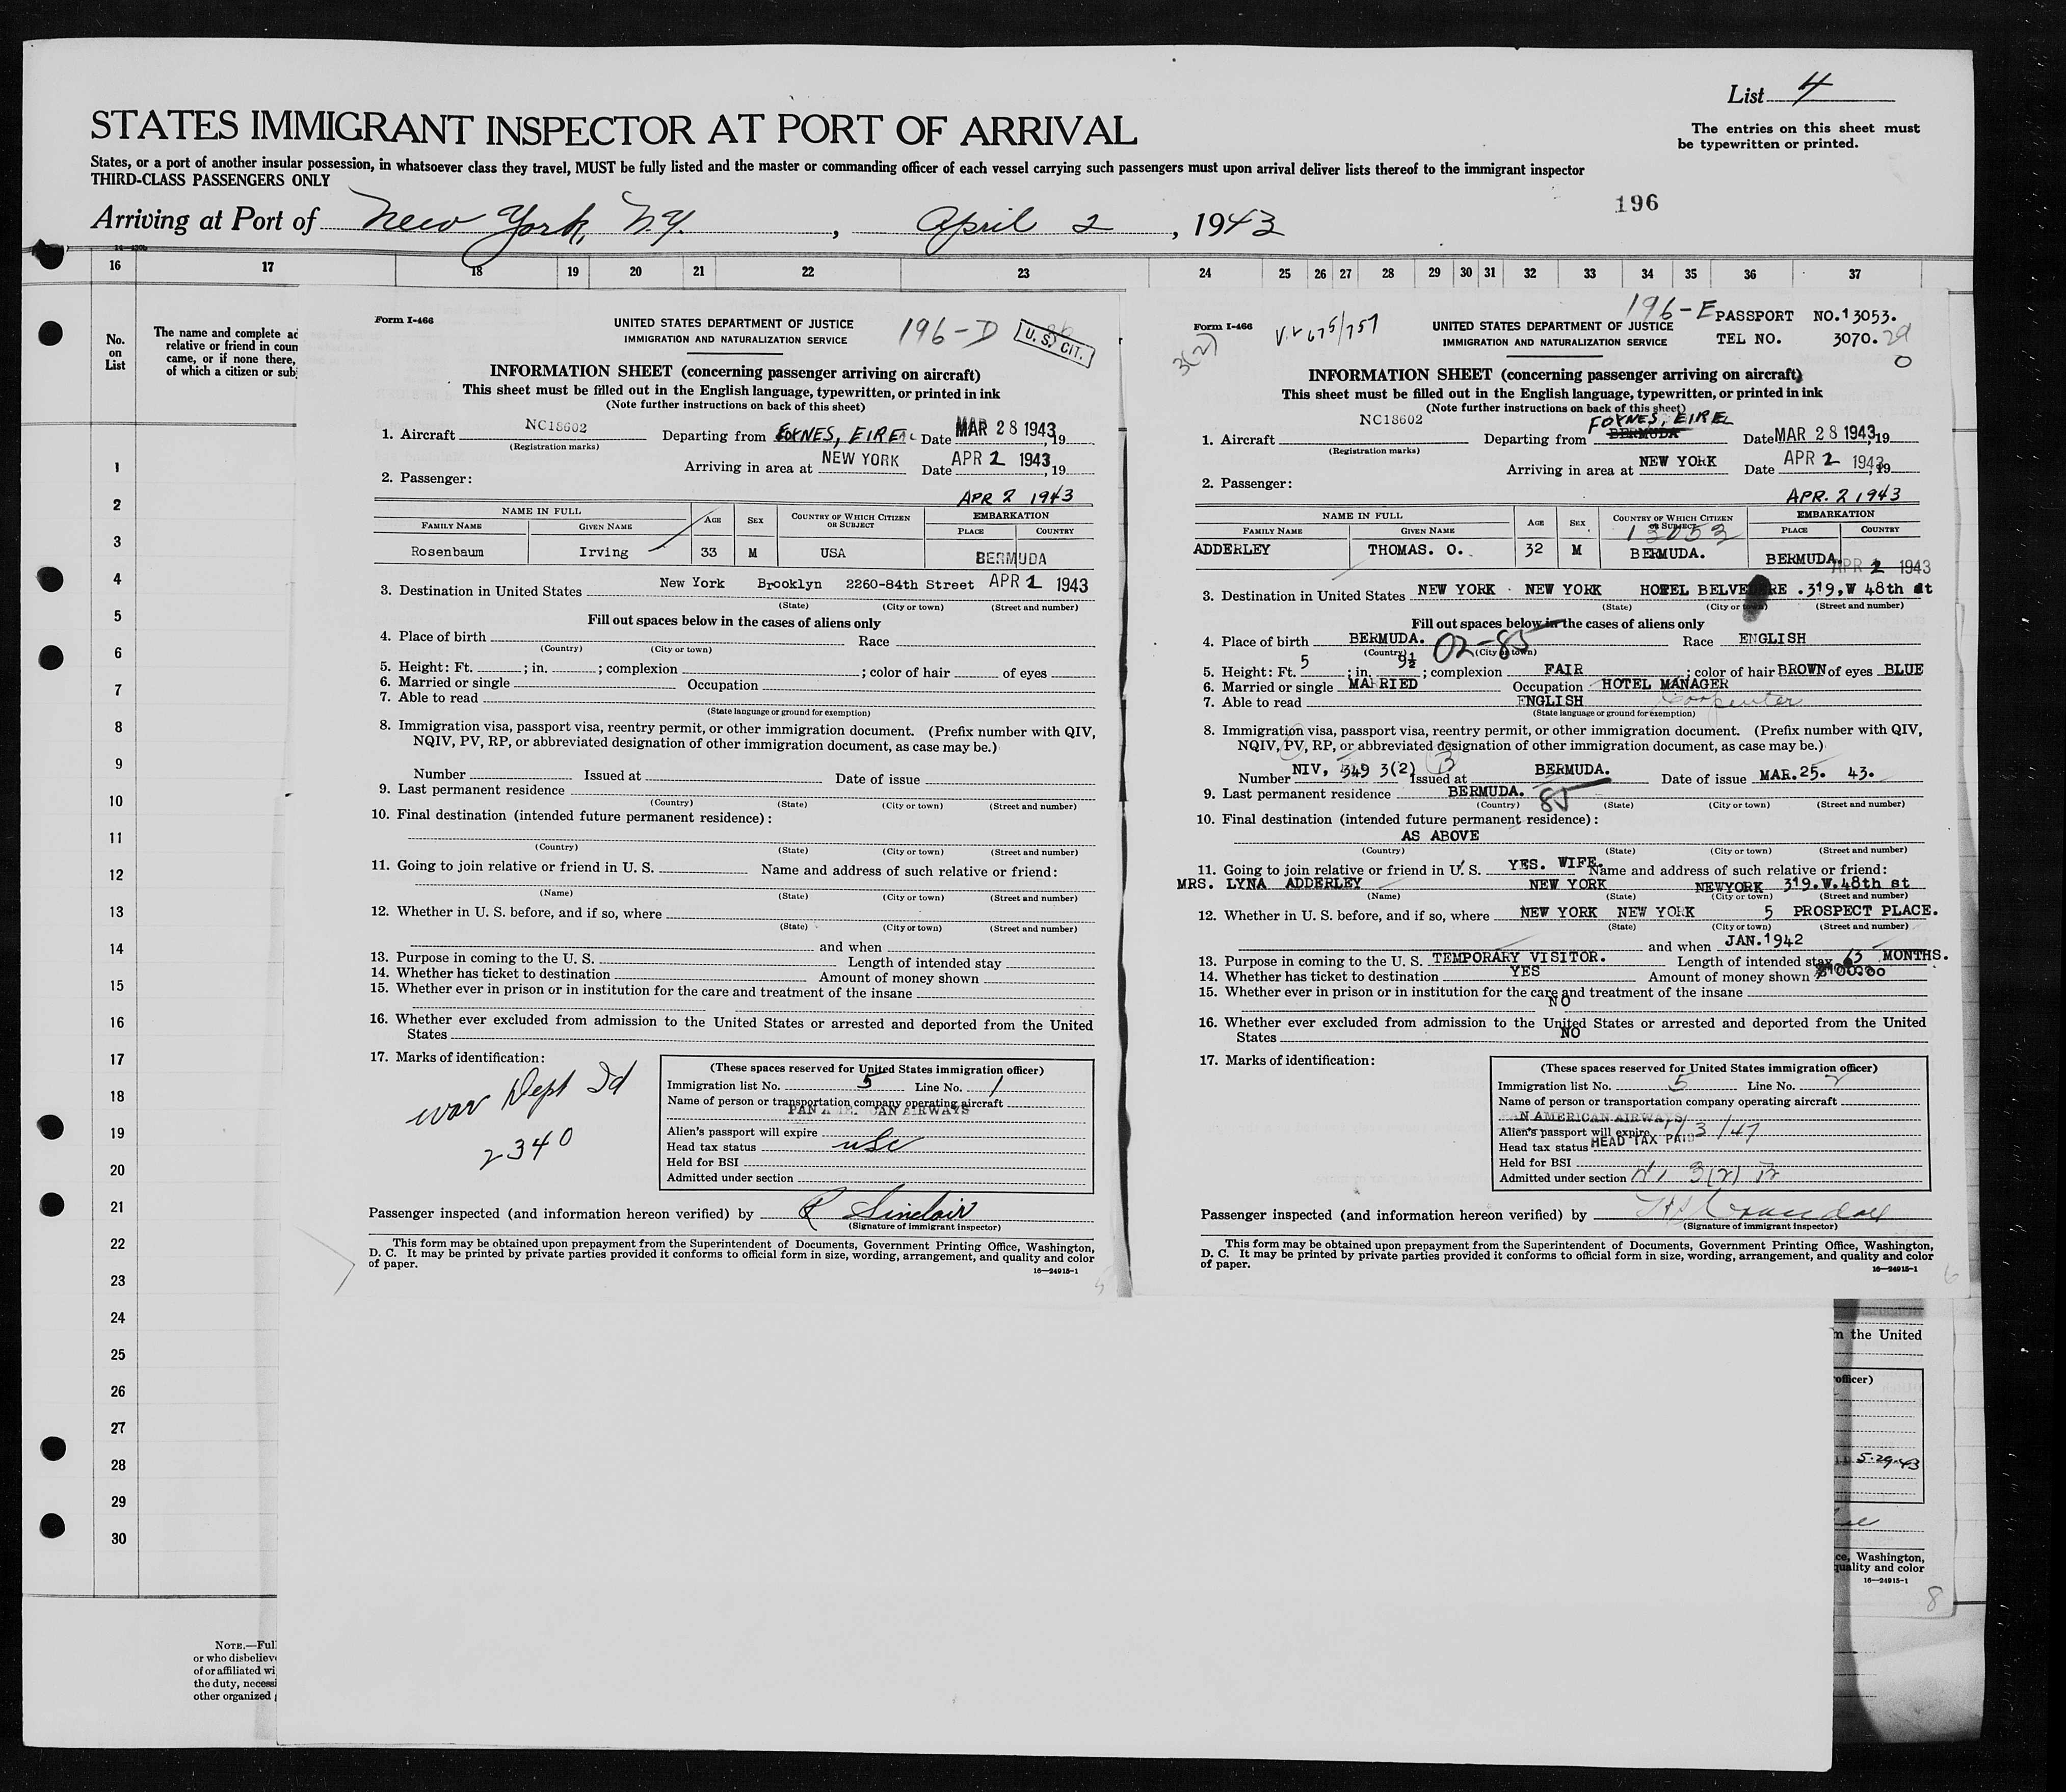 List 4
STATES IMMIGRANT INSPECTOR AT PORT OF ARRIVAL
The entries on this sheet must
be typewritten or printed.
States, or a port of another insular possession, in whatsoever class they travel, MUST be fully listed and the master or commanding officer of each vessel carrying such passengers must upon arrival deliver lists thereof to the immigrant inspector
THIRD-CLASS PASSENGERS ONLY
196
Arriving at Port of New York, N.Y. , April 2 , 1943
16 17 18 19 20 21 22 23 24 25 26 27 28 29 30 31 32 33 34 35 36 37
No.
on
List
The name and complete ad
relative or friend in coun
came, or if none there,
of which a citizen or subj
1
2
3
4
5
6
7
8
9
10
11
12
13
14
15
16
17
18
19
20
21
22
23
24
25
26
27
28
29
30
NOTE.—Full
or who disbeliev
of or affiliated wi
the duty, necessi
other organized
Form I-466
UNITED STATES DEPARTMENT OF JUSTICE
IMMIGRATION AND NATURALIZATION SERVICE
196-D
U. S. CIT.
INFORMATION SHEET (concerning passenger arriving on aircraft)
This sheet must be filled out in the English language, typewritten, or printed in ink
(Note further instructions on back of this sheet)
1. Aircraft NC18602 Departing from FOYNES, EIRE Date MAR 28 1943, 19
(Registration marks)
Arriving in area at NEW YORK Date APR 2 1943, 19
2. Passenger:
APR 2 1943
NAME IN FULL AGE SEX COUNTRY OF WHICH CITIZEN OR SUBJECT EMBARKATION
FAMILY NAME GIVEN NAME PLACE COUNTRY
Rosenbaum Irving 33 M USA BERMUDA
3. Destination in United States New York Brooklyn 2260-84th Street APR 2 1943
(State) (City or town) (Street and number)
Fill out spaces below in the cases of aliens only
4. Place of birth Race
(Country) (City or town)
5. Height: Ft. ; in. ; complexion ; color of hair of eyes
6. Married or single Occupation
7. Able to read
(State language or ground for exemption)
8. Immigration visa, passport visa, reentry permit, or other immigration document. (Prefix number with QIV,
NQIV, PV, RP, or abbreviated designation of other immigration document, as case may be.)
Number Issued at Date of issue
9. Last permanent residence
(Country) (State) (City or town) (Street and number)
10. Final destination (intended future permanent residence):
(Country) (State) (City or town) (Street and number)
11. Going to join relative or friend in U. S. Name and address of such relative or friend:
(Name) (State) (City or town) (Street and number)
12. Whether in U. S. before, and if so, where
(State) (City or town) (Street and number)
and when
13. Purpose in coming to the U. S. Length of intended stay
14. Whether has ticket to destination Amount of money shown
15. Whether ever in prison or in institution for the care and treatment of the insane
16. Whether ever excluded from admission to the United States or arrested and deported from the United
States
17. Marks of identification:
War Dept Id
2340
(These spaces reserved for United States immigration officer)
Immigration list No. 5 Line No. 1
Name of person or transportation company operating aircraft
PAN AMERICAN AIRWAYS
Alien's passport will expire
Head tax status usc
Held for BSI
Admitted under section
Passenger inspected (and information hereon verified) by R Sinclair
(Signature of immigrant inspector)
This form may be obtained upon prepayment from the Superintendent of Documents, Government Printing Office, Washington,
D. C. It may be printed by private parties provided it conforms to official form in size, wording, arrangement, and quality and color
of paper.
16—24915-1
Form I-466
3(2)
UNITED STATES DEPARTMENT OF JUSTICE
IMMIGRATION AND NATURALIZATION SERVICE
196-E PASSPORT NO.13053.
TEL NO. 3070.
INFORMATION SHEET (concerning passenger arriving on aircraft)
This sheet must be filled out in the English language, typewritten, or printed in ink
(Note further instructions on back of this sheet)
FOYNES, EIRE
1. Aircraft NC18602 Departing from BERMUDA Date MAR 28 1943, 19
(Registration marks)
Arriving in area at NEW YORK Date APR 2 1943, 19
2. Passenger:
APR. 2 1943
NAME IN FULL AGE SEX COUNTRY OF WHICH CITIZEN OR SUBJECT EMBARKATION
FAMILY NAME GIVEN NAME PLACE COUNTRY
13053
ADDERLEY THOMAS. O. 32 M BERMUDA. BERMUDA.
APR 2 1943
3. Destination in United States NEW YORK NEW YORK HOTEL BELVEDERE .319,W 48th st
(State) (City or town) (Street and number)
Fill out spaces below in the cases of aliens only
4. Place of birth BERMUDA. 02-85 Race ENGLISH
(Country) (City or town)
5. Height: Ft. 5 ; in. 9½ ; complexion FAIR ; color of hair BROWN of eyes BLUE
6. Married or single MARRIED Occupation HOTEL MANAGER
7. Able to read ENGLISH Carpenter
(State language or ground for exemption)
8. Immigration visa, passport visa, reentry permit, or other immigration document. (Prefix number with QIV,
NQIV, PV, RP, or abbreviated designation of other immigration document, as case may be.)
Number NIV, 349 3(2) B Issued at BERMUDA. Date of issue MAR.25. 43.
9. Last permanent residence BERMUDA. 85
(Country) (State) (City or town) (Street and number)
10. Final destination (intended future permanent residence):
AS ABOVE
(Country) (State) (City or town) (Street and number)
11. Going to join relative or friend in U. S. YES. WIFE. Name and address of such relative or friend:
MRS. LYNA ADDERLEY NEW YORK NEWYORK 319.W.48th st
(Name) (State) (City or town) (Street and number)
12. Whether in U. S. before, and if so, where NEW YORK NEW YORK 5 PROSPECT PLACE.
(State) (City or town) (Street and number)
and when JAN.1942
13. Purpose in coming to the U. S. TEMPORARY VISITOR. Length of intended stay 3 MONTHS.
14. Whether has ticket to destination YES Amount of money shown
15. Whether ever in prison or in institution for the care and treatment of the insane
NO
16. Whether ever excluded from admission to the United States or arrested and deported from the United
States NO
17. Marks of identification:
(These spaces reserved for United States immigration officer)
Immigration list No. 5 Line No. 2
Name of person or transportation company operating aircraft
PAN AMERICAN AIRWAYS
Alien's passport will expire 1/3/47
Head tax status HEAD TAX PAID
Held for BSI
Admitted under section 3(2) B
Passenger inspected (and information hereon verified) by
(Signature of immigrant inspector)
This form may be obtained upon prepayment from the Superintendent of Documents, Government Printing Office, Washington,
D. C. It may be printed by private parties provided it conforms to official form in size, wording, arrangement, and quality and color
of paper.
16—24915-1
m the United
officer)
5-29-43
ce, Washington,
quality and color
16—24915-1
8